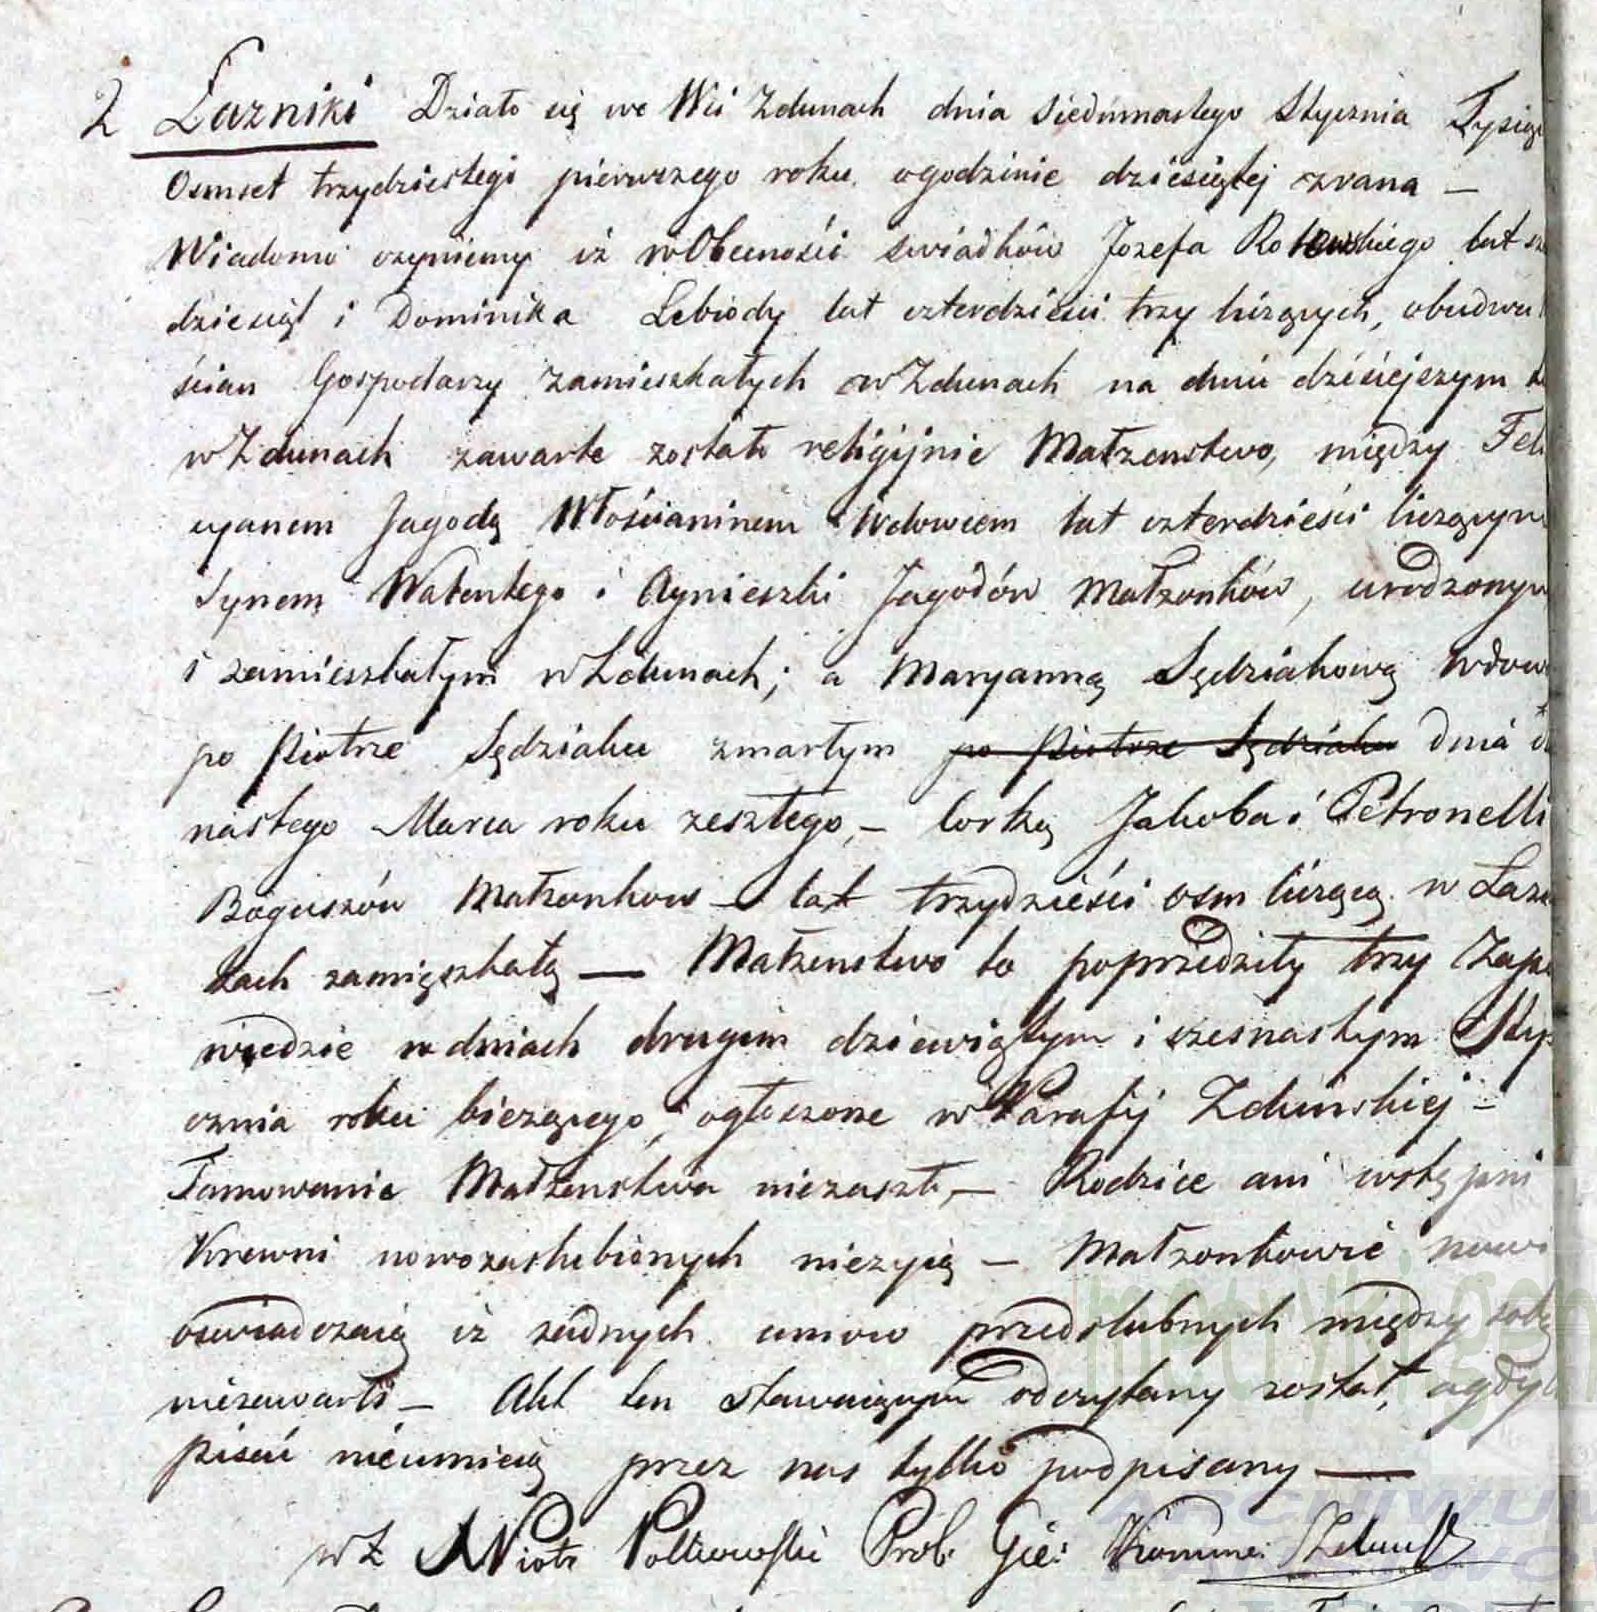 2 Łazniki Działo się we Wsi Zdunach dnia siedmnastego Stycznia Tysiąc
Osmset trzydziestego pierwszego roku ogodzinie dziesiątej zrana —
Wiadomo czyniemy iż wObecności swiadków Jozefa Rotowskiego lat sze
dziesiąt i Dominika Lebiody lat czterdzieści trzy liczących, obudwu
ścian Gospodarzy zamieszkałych w Zdunach na dniu dzisiejszym
wZdunach zawarte zostało religijnie Małzenstwo, między Feli
cyanem Jagodą Włościaninem Wdowcem lat czterdzieści liczącym
Synem Walentego i Agnieszki Jagodów Małzonków, urodzonym
i zamieszkałym wZdunach; a Maryanną Sędziakową wdow
po Piotrze Sędziaku zmarłym po Piotrze Sędziaku dnia
nastego Marca roku zeszłego, — Corką Jakoba i Petronelli
Boguszów Małzonkow — lat trzydzieści osm liczącą w Lazni
kach zamięszkałą — Małzenstwo to poprzedziły trzy Zapo
wiedzie w dniach drugim dziewiątym i szesnastym Sty
cznia roku bieżącego, ogłoszone w Parafij Zduńskiej —
Tamowanie Małzenstwa niezaszło, — Rodzice ani wstępni
Krewni nowozaslubionych nieżyią — Małzonkowie nowi
oswiadczaią iż zadnych umow przedslubnych między sobą
niezawarli — Akt ten stawaiącym odczytany został, agdy
pisać nieumieią przez nas tylko podpisany —
wZ X Piotr Polkowski Prob: Gie: Kommi: Zduńsk
metryki.gen
ARCHIWUM
PAŃSTWOW